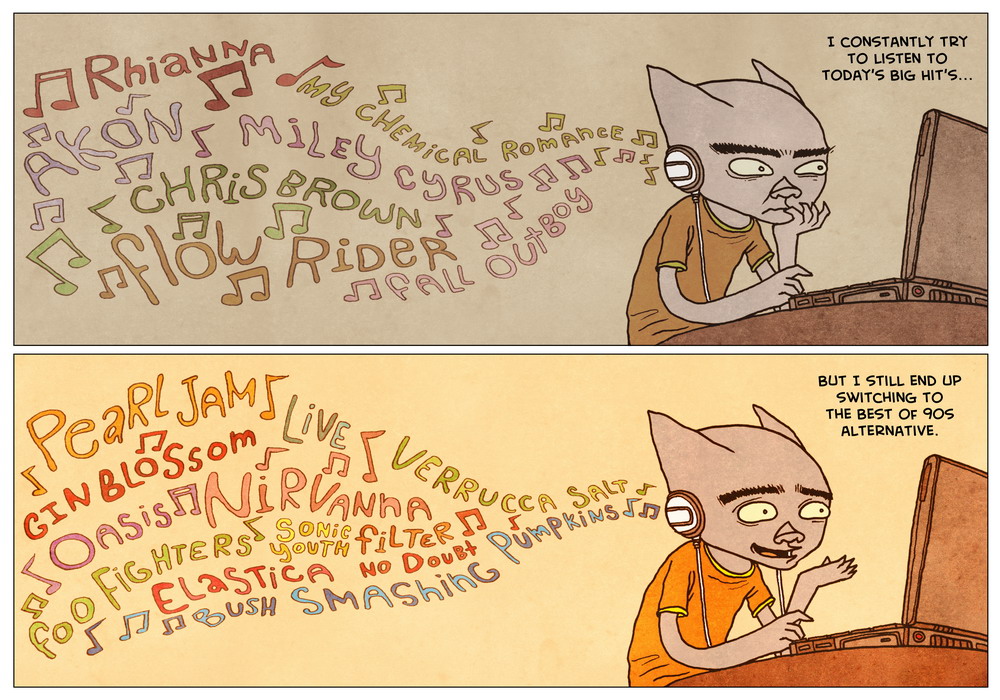 I CONSTANTLY TRY
TO LISTEN TO
TODAY'S BIG HIT'S...
RhiaNNA
MY CHEMICAL ROMANCE
AKON
MiLEY CYRUS
CHRiS BROWN
flOW RiDER
fALL OUtBOY
BUT I STILL END UP
SWITCHING TO
THE BEST OF 90S
ALTERNATIVE.
PeaRL JAM
LiVE
VERRUCCA SALT
GIN BLOSSom
OASiS
NiRVAnna
FOO FiGHTERS
SONiC
YOUTH
fiLTER
PUMPKINS
ELASTiCA
NO DOUBt
BUSH
SMASHinG